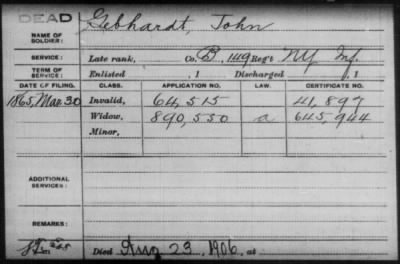 DEAD
NAME OF SOLDIER: Gebhardt, John
SERVICE: Late rank, Co. B, 149 Reg't NY Inf.
TERM OF SERVICE: Enlisted , 1 Discharged , 1
DATE OF FILING. CLASS. APPLICATION NO. LAW. CERTIFICATE NO.
1865, Mar. 30 Invalid, 64,515 41,897
Widow, 890,550 a 645,944
Minor,
ADDITIONAL SERVICES:
REMARKS:
Died Aug 23, 1906, at